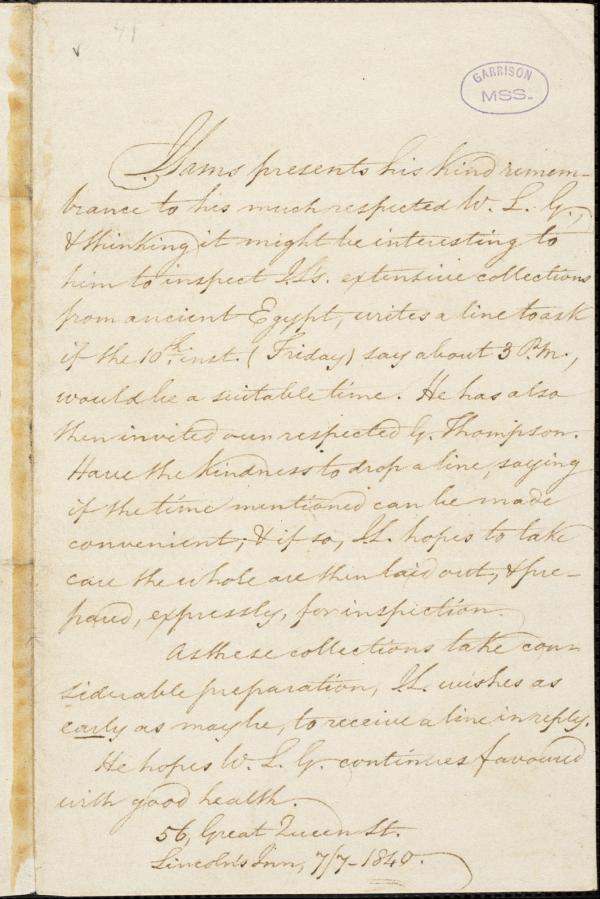 41
GARRISON
MSS.
J. Sams presents his kind remem-
brance to his much respected W. L. G.,
& thinking it might be interesting to
him to inspect J.S's. extensive collections
from ancient Egypt, writes a line to ask
if the 10th. inst. (Friday) say about 3 P.m.,
would be a suitable time. He has also
then invited our respected G. Thompson.
Have the kindness to drop a line, saying
if the time mentioned can be made
convenient; & if so, J.S. hopes to take
care the whole are then laid out, & pre-
pared, expressly, for inspection.
As these collections take con-
siderable preparation, J.S. wishes as
early as may be, to receive a line in reply.
He hopes W. L. G. continues favoured
with good health.
56, Great Queen St.
Lincoln's Inn, 7/7-1840.